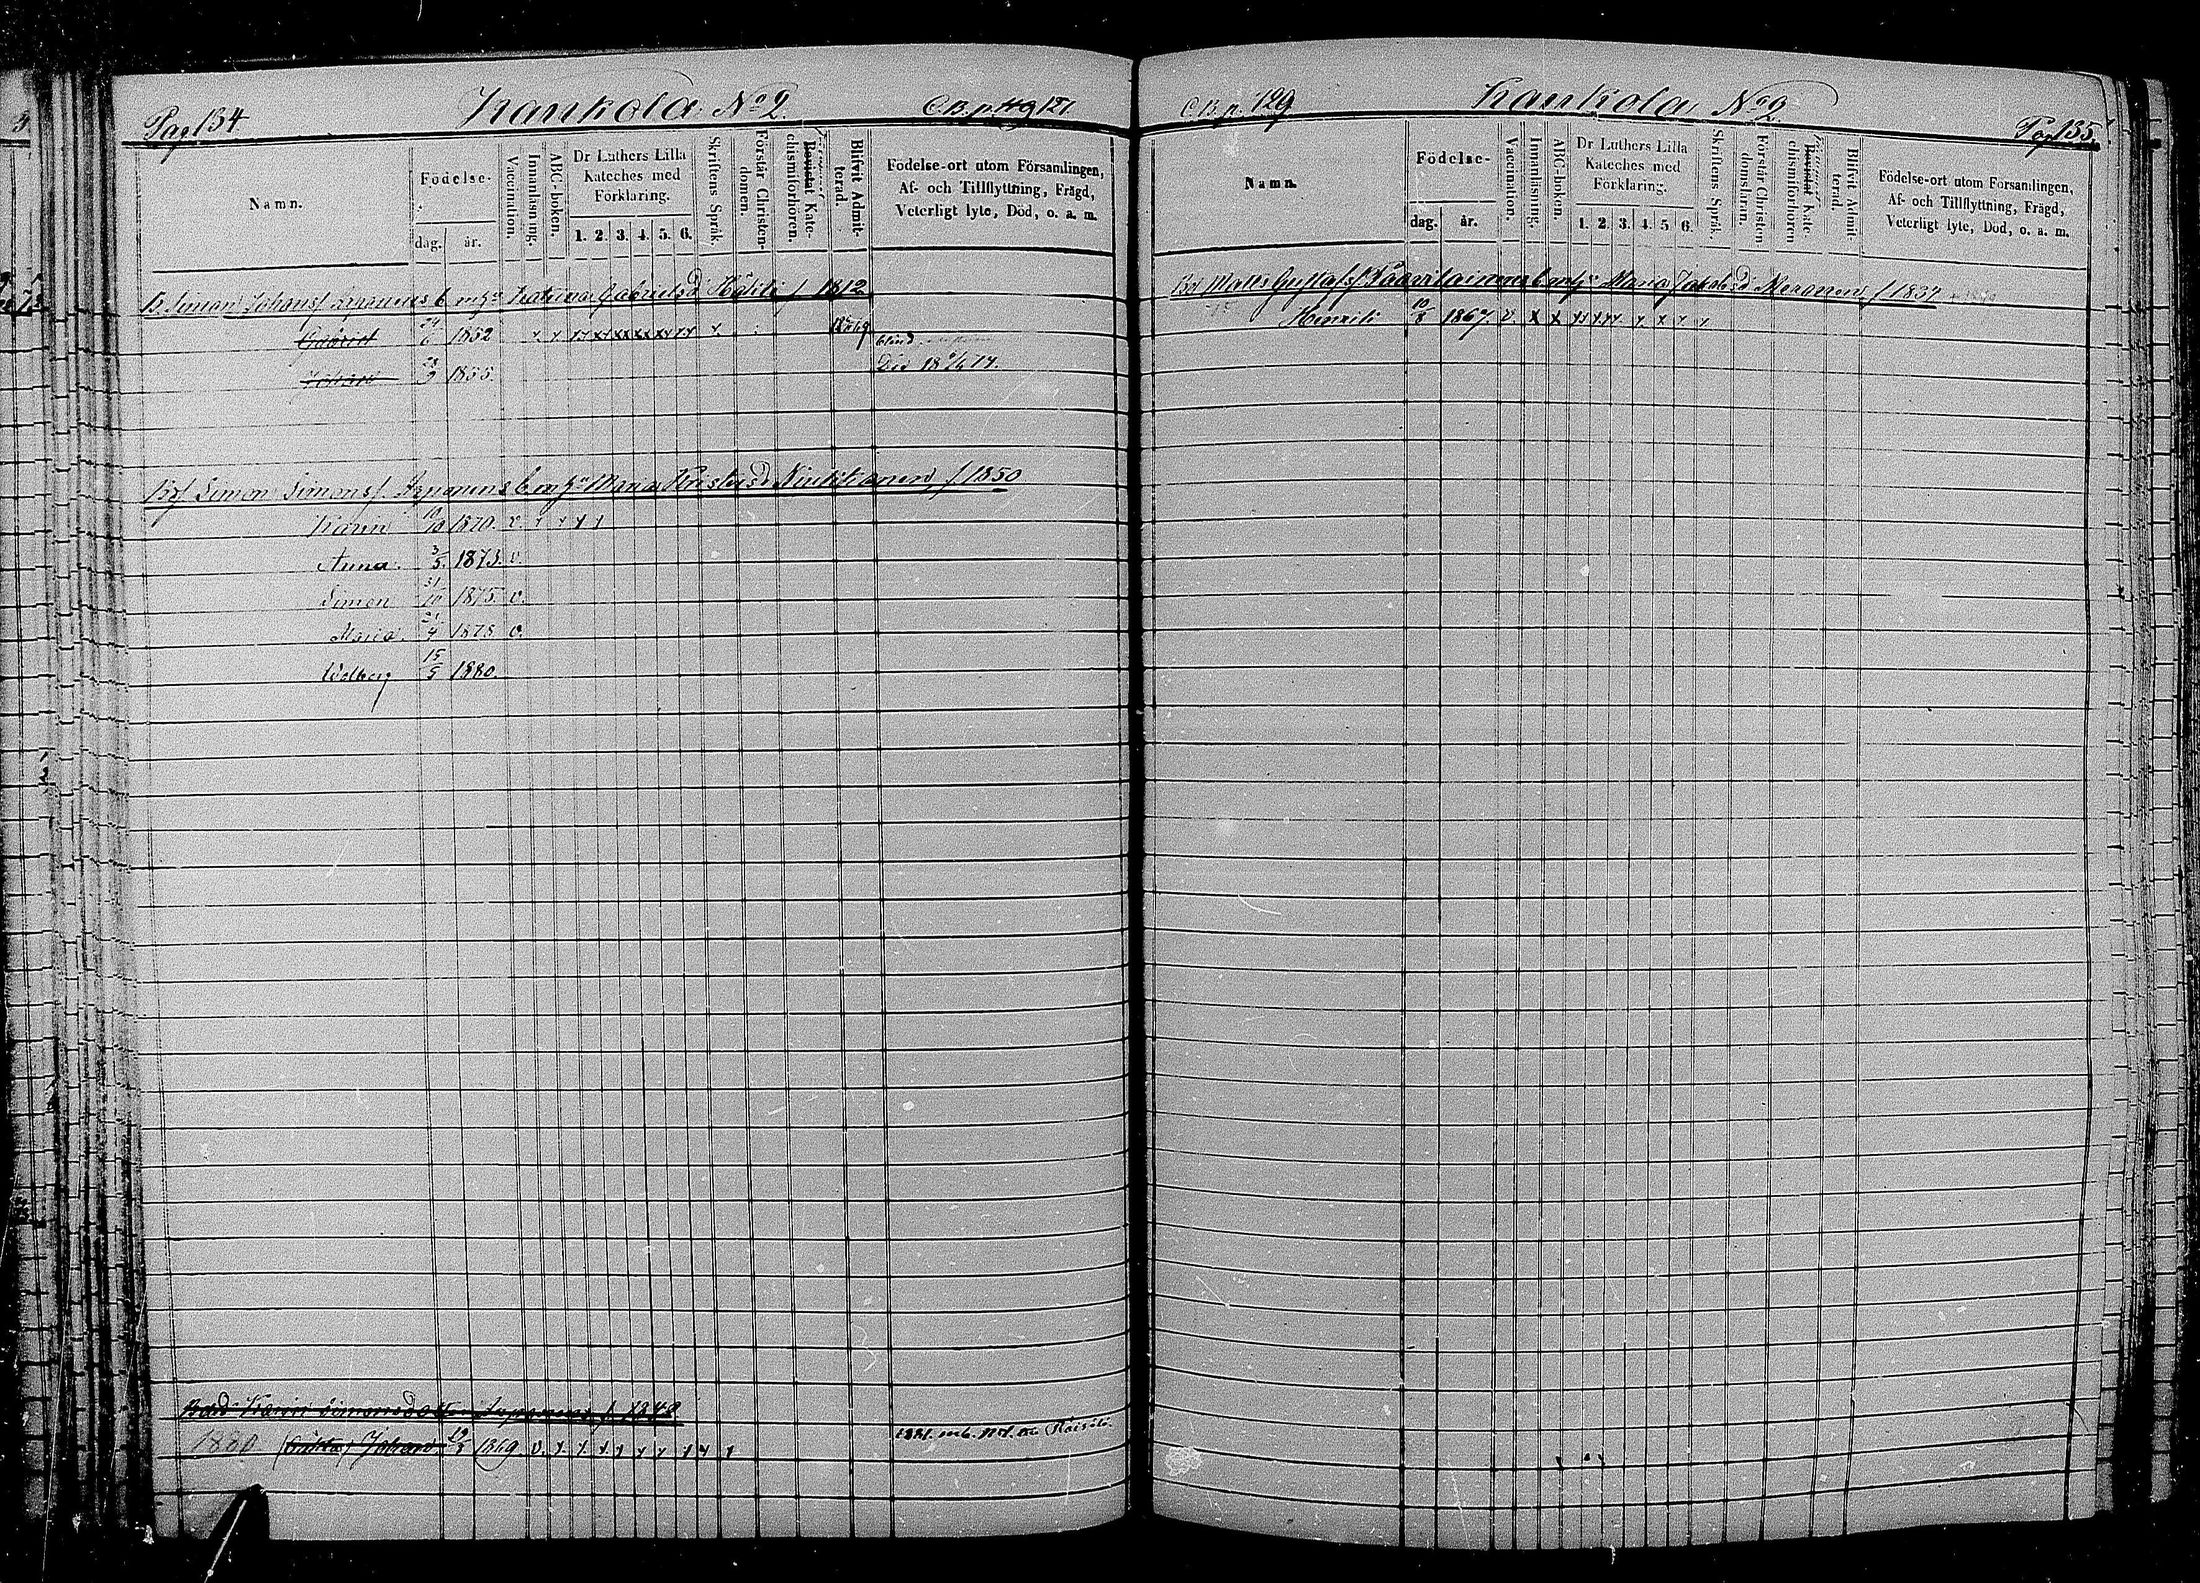 Pag 134
Kankola No 2.
C.B.p. 119 121
Namn.
Födelse-
dag.
år.
Vaccination.
Innanläsning.
ABC-boken.
Dr Luthers Lilla
Kateches med
Förklaring.
1. 2. 3. 4. 5. 6.
Skriftens Språk.
Förstår Christen-
domen.
Bevistat Kate-
chismiförhören.
Blifvit Admit-
terad.
Födelse-ort utom Församlingen,
Af- och Tillflyttning, Frägd,
Veterligt lyte, Död, o. a. m.
B. Simon Johansf Reponens b m h:u Katrina Gabrielsd f 1812
Gabriel 1852 blind
Johan 23/9 1855. Död 18 74.
Simon Simonsf b m h:u Maria f 1850
Karin 10/10 1870. v.
Anna. 3/5. 1873. v.
Simon 31/10 1875 v.
Maria. 4 1878 v.
Walborg 15/5 1880.
Karin Simonsdotter f. 1848
1880 (oäkta) Johan 1869 v.
1881 Räisälä
C.B.p. 129
Kankola No 2.
Pag 135.
Namn.
Födelse-
dag.
år.
Vaccination.
Innanläsning.
ABC-boken.
Dr Luthers Lilla
Kateches med
Förklaring.
1. 2. 3. 4. 5. 6.
Skriftens Språk.
Förstår Christen
domsläran.
Bevistat Kate
chismiförhören
Blifvit Admit-
terad.
Födelse-ort utom Församlingen,
Af- och Tillflyttning, Frägd,
Veterligt lyte, Död, o. a. m.
Matts Gustafsf Paavilainens b m h:u Maria Jakobsd f 1837
Henrik 10/8 1867. v. x x